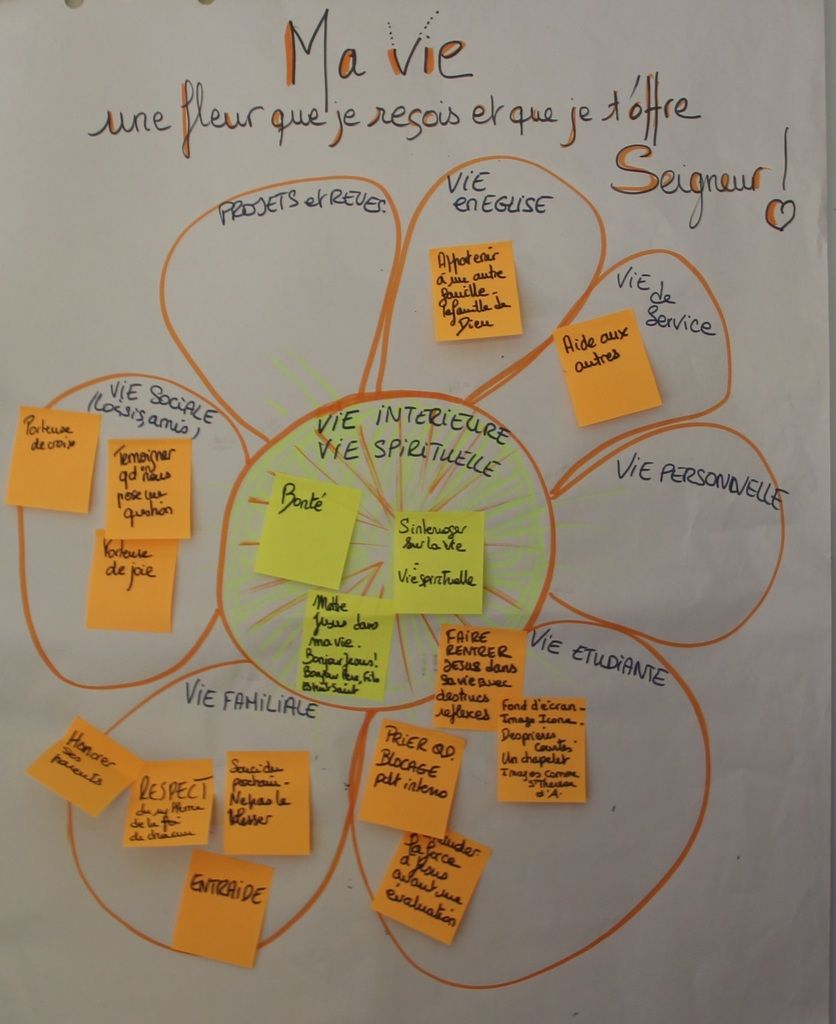 Ma Vie
une fleur que je reçois et que je t'offre
Seigneur !
PROJETS et REVES
VIE
en EGLISE
Appartenir
à une autre
famille -
la famille de
Dieu
VIE de
Service
Aide aux
autres
VIE SOCIALE
amis)
Porteuse
de croix
Temoigner
qd nous
pose une
question
Porteuse
de joie
VIE INTERIEURE
VIE SPIRITUELLE
Bonté
S'interroger
sur la vie
Vie spirituelle
Mettre
Jesus dans
ma vie.
Bonjour Jesus!
Bonjour Pere, Fils
Esprit Saint
VIE PERSONNELLE
VIE ETUDIANTE
FAIRE
RENTRER
JESUS dans
sa vie avec
des trucs
reflexes
Fond d'écran -
Image Icone.
Des prières
courtes
Un chapelet
Images comme
Ste Therese
d'A.
PRIER QD.
BLOCAGE
pdt interro
la force
à Jesus
avant une
évaluation
VIE FAMILIALE
Honorer
ses
parents
RESPECT
du rythme
de la foi
de chacun
Souci du
prochain -
Ne pas le
blesser
ENTRAIDE